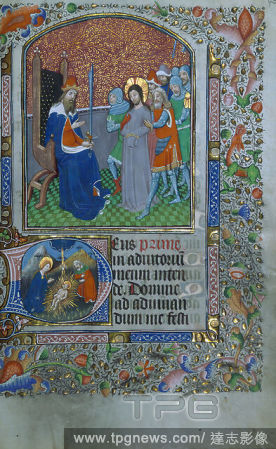 Eus prime
in adiutoriu
meum inten
de. Domine
ad adiuvan
dum me festi
TPG
www.tpgnews.com/ 達志影像